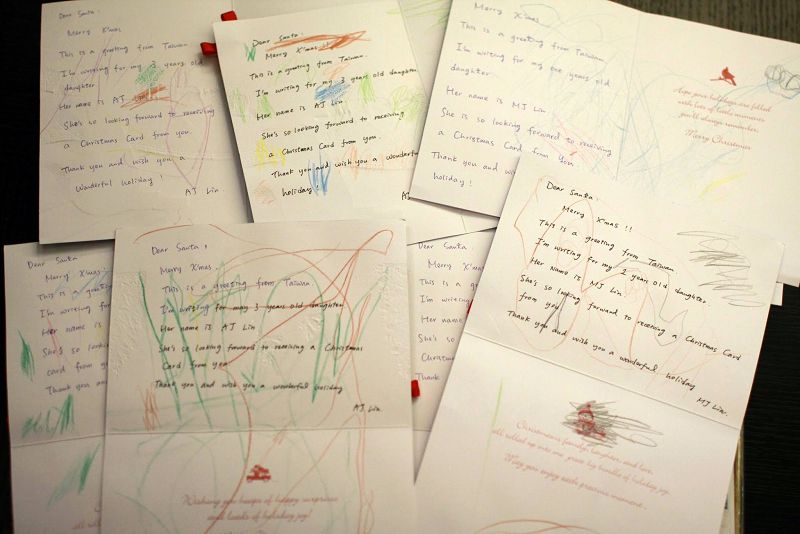 Dear Santa :
Merry X'mas
This is a greeting from Taiwan
I'm writing for my 3 years old
daughter
Her name is AJ Lin
She's so looking forward to receiving
a Christmas Card from you.
Thank you and wish you a
Wonderful holiday !
AJ Lin
Dear Santa :
Merry X'mas !!
This is a greeting from Taiwan
I'm writing for my 3 years old daughter
Her name is AJ Lin
She's so looking forward to receiving
a Christmas Card from you
Thank you and wish you a wonderful
holiday !
AJ
Merry X'mas
This is a greeting from Taiwan
I'm writing for my one years old
daughter
Her name is MJ Lin
She is so looking forward to receiving
a Christmas Card from you
Thank you and wish
holiday !
Hope your holidays are filled
with lots of little memories
you'll always remember.
Merry Christmas
Dear Santa
Merry X'mas
This is a
I'm writing
Her name is
She's so
card from
Thank you and
Dear Santa :
Merry X'mas
This is a greeting from Taiwan
I'm writing for may 3 years old daughter
Her name is AJ Lin
She's so looking forward to receiving a Christmas
Card from you
Thank you and wish you a wonderful holiday
AJ Lin
Wishing you heaps of happy surprises
and loads of holiday joy!
Dear Santa
Merry X'mas
This is a
I'm writing
Her name
She's so
Christmas
Thank
Dear Santa :
Merry X'mas !!
This is a greeting from Taiwan
I'm writing for my 2 year old daughter
Her Name is MJ Lin
She's so looking forward to receiving a Christmas Card
from you
Thank you and wish you a wonderful holiday
MJ Lin.
Christmas family, laughter, and love,
all rolled up into one great big bundle of holiday joy.
May you enjoy each precious moment.